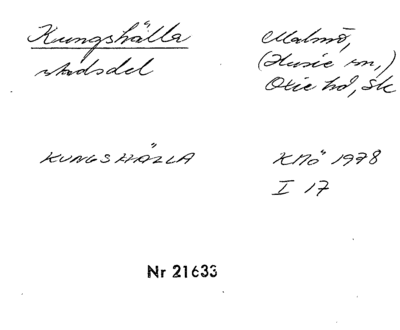 Kungshälla
stadsdel
Malmö,
(Husie sn,)
Oxie hd, Sk
KUNGSHÄLLA
KMÖ 1978
I 17
Nr 21633